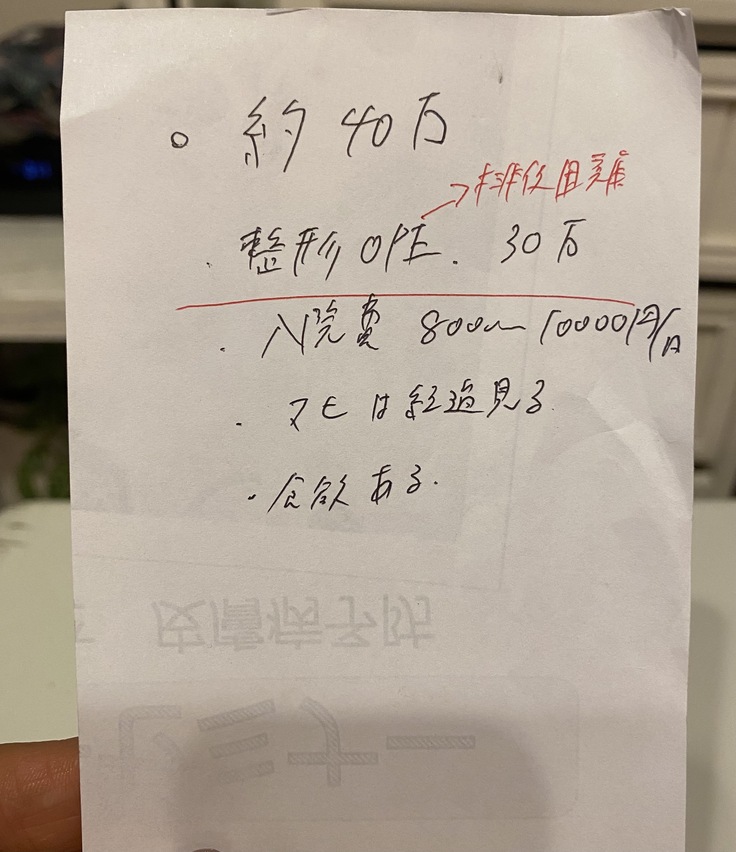 ○ 約40万
→排便困難
・整形OPE. 30万
・入院費 8000〜10000円/日
・マヒは経過見る
・食欲ある.
皮膚病予防